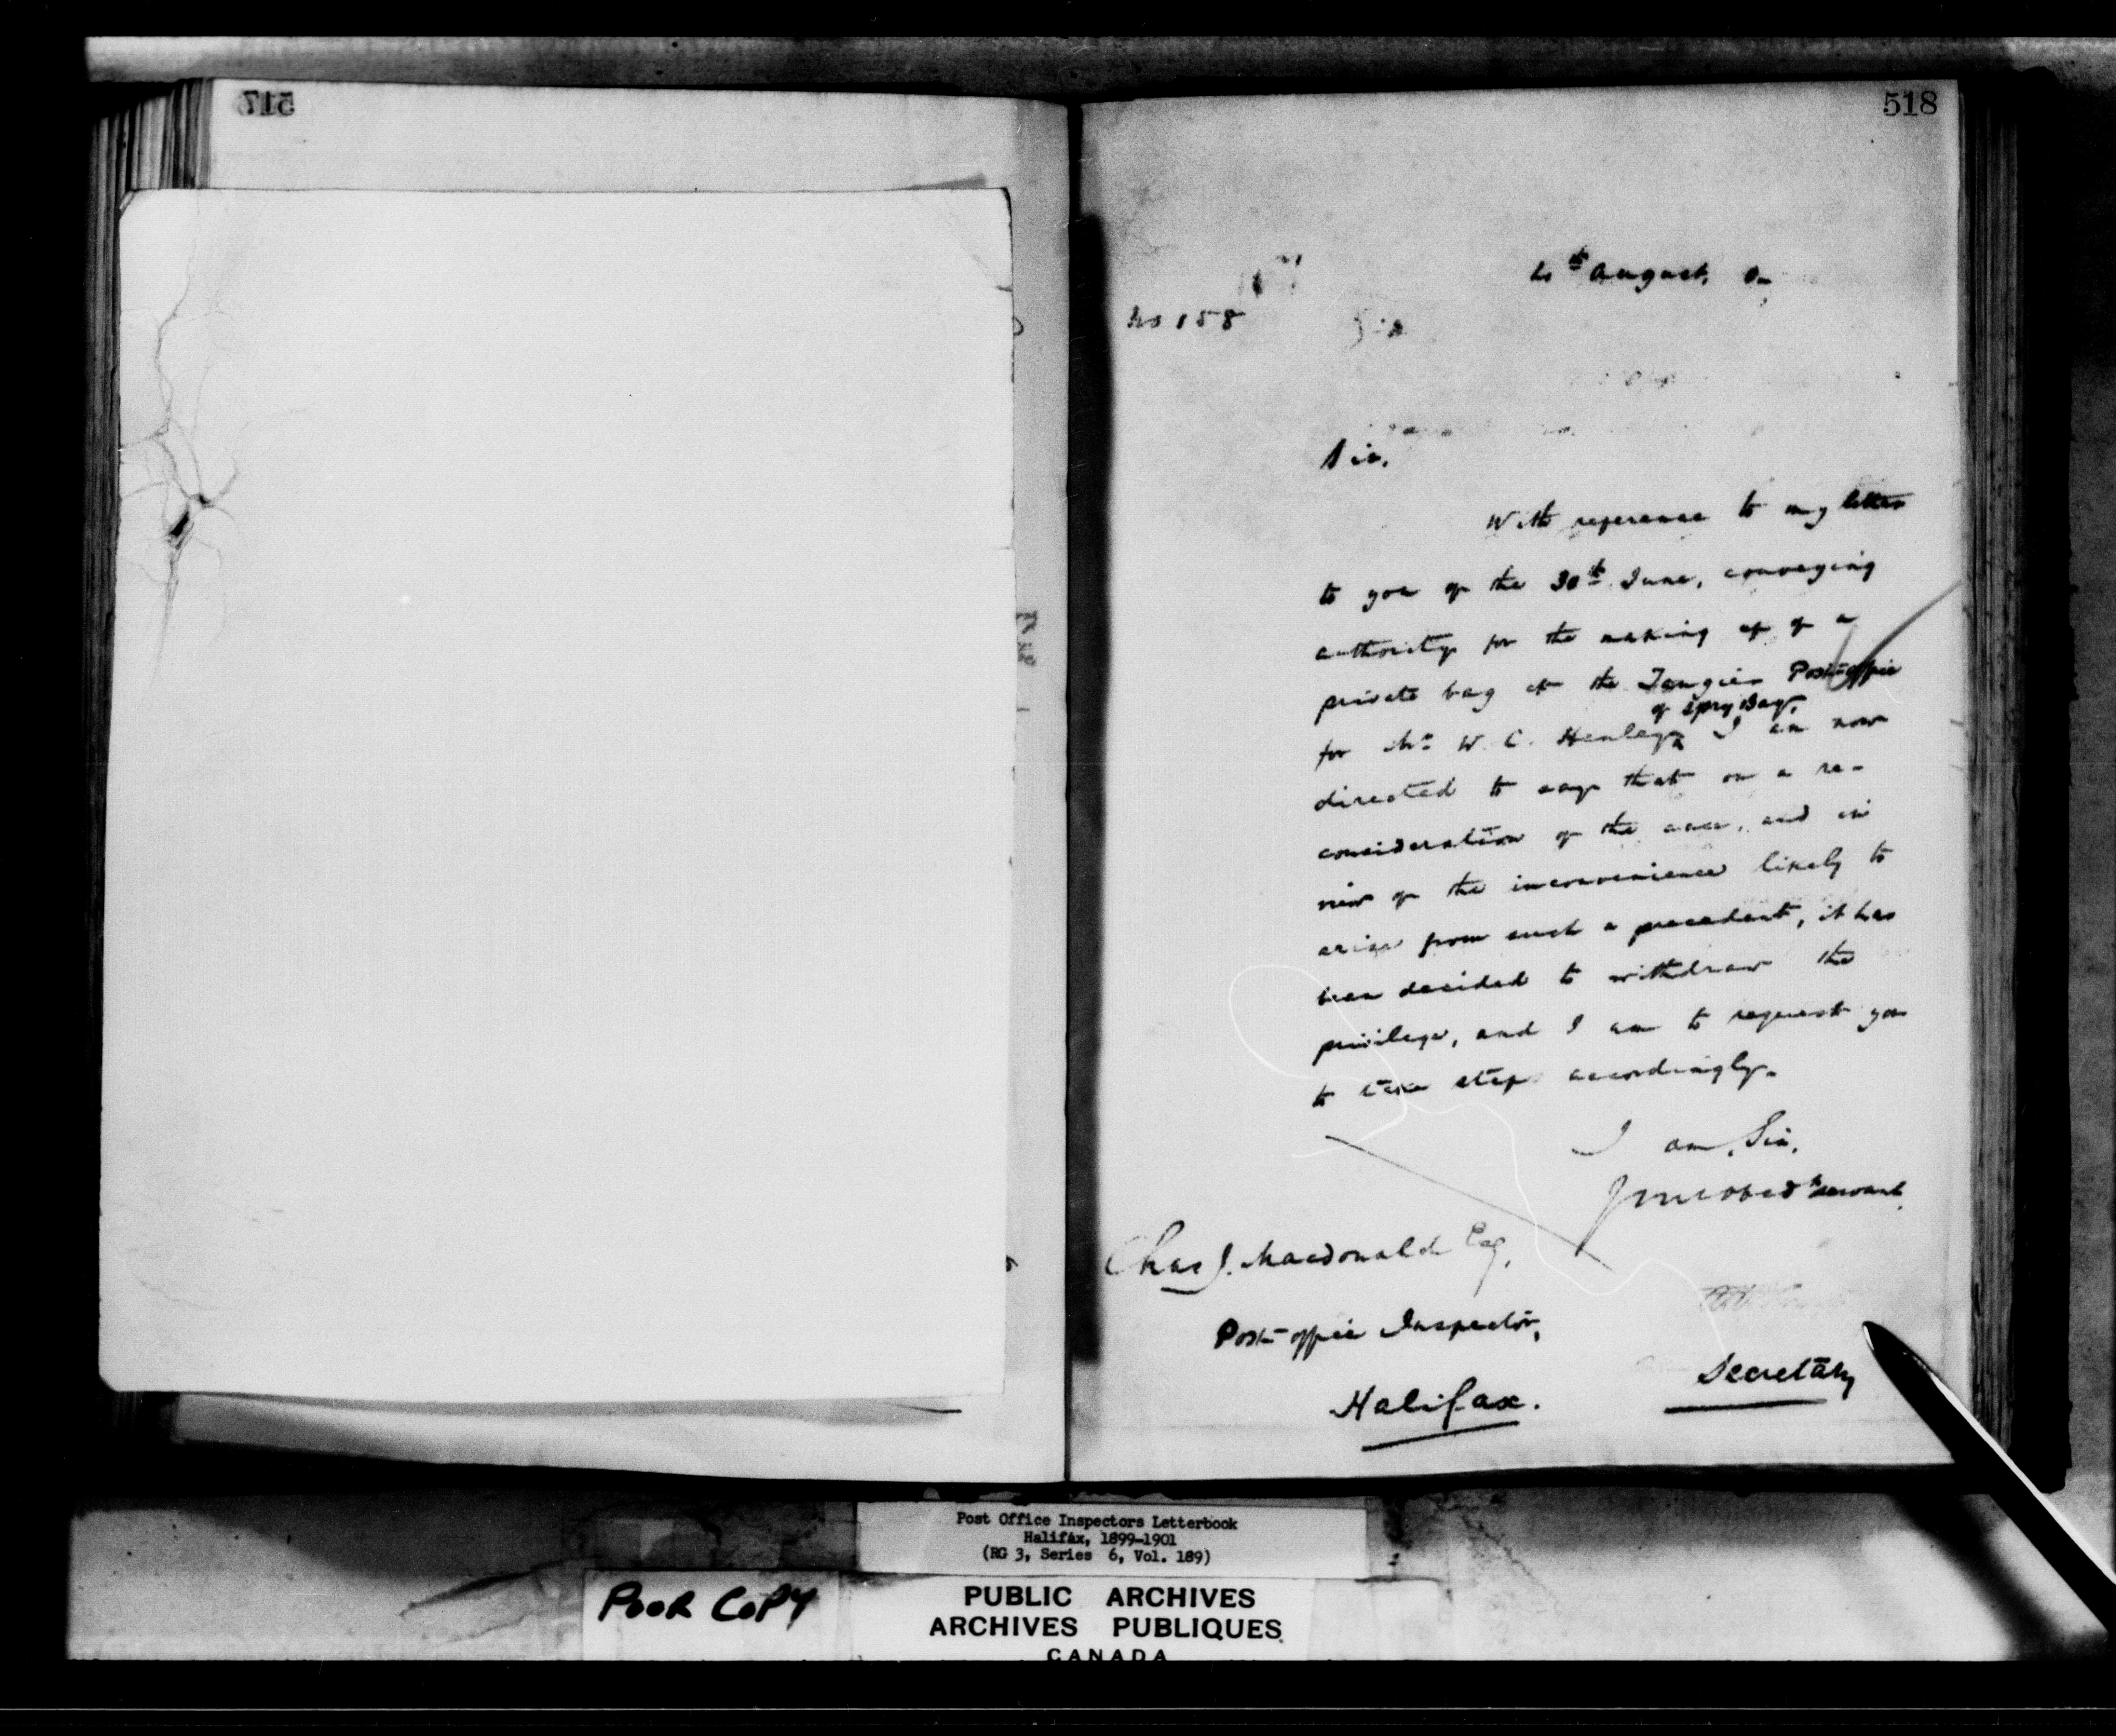 517
518
August,
No 158
Sir,
With reference to my letter
to you of the 30th June, conveying
authority for the making up of a
private bag at the Tangier Post-office
of Spry Bay,
for Mr W. C. Henley, I am now
directed to say that on a re-
consideration of the case, and in
view of the inconvenience likely to
arise from such a precedent, it has
been decided to withdraw the
privilege, and I am to request you
to take steps accordingly.
I am, Sir,
Your obedt servant,
Chas J. Macdonald Esq,
Post-office Inspector,
Halifax.
Secretary
Post Office Inspectors Letterbook
Halifax, 1899-1901
(RG 3, Series 6, Vol. 189)
POOR COPY
PUBLIC ARCHIVES
ARCHIVES PUBLIQUES
CANADA